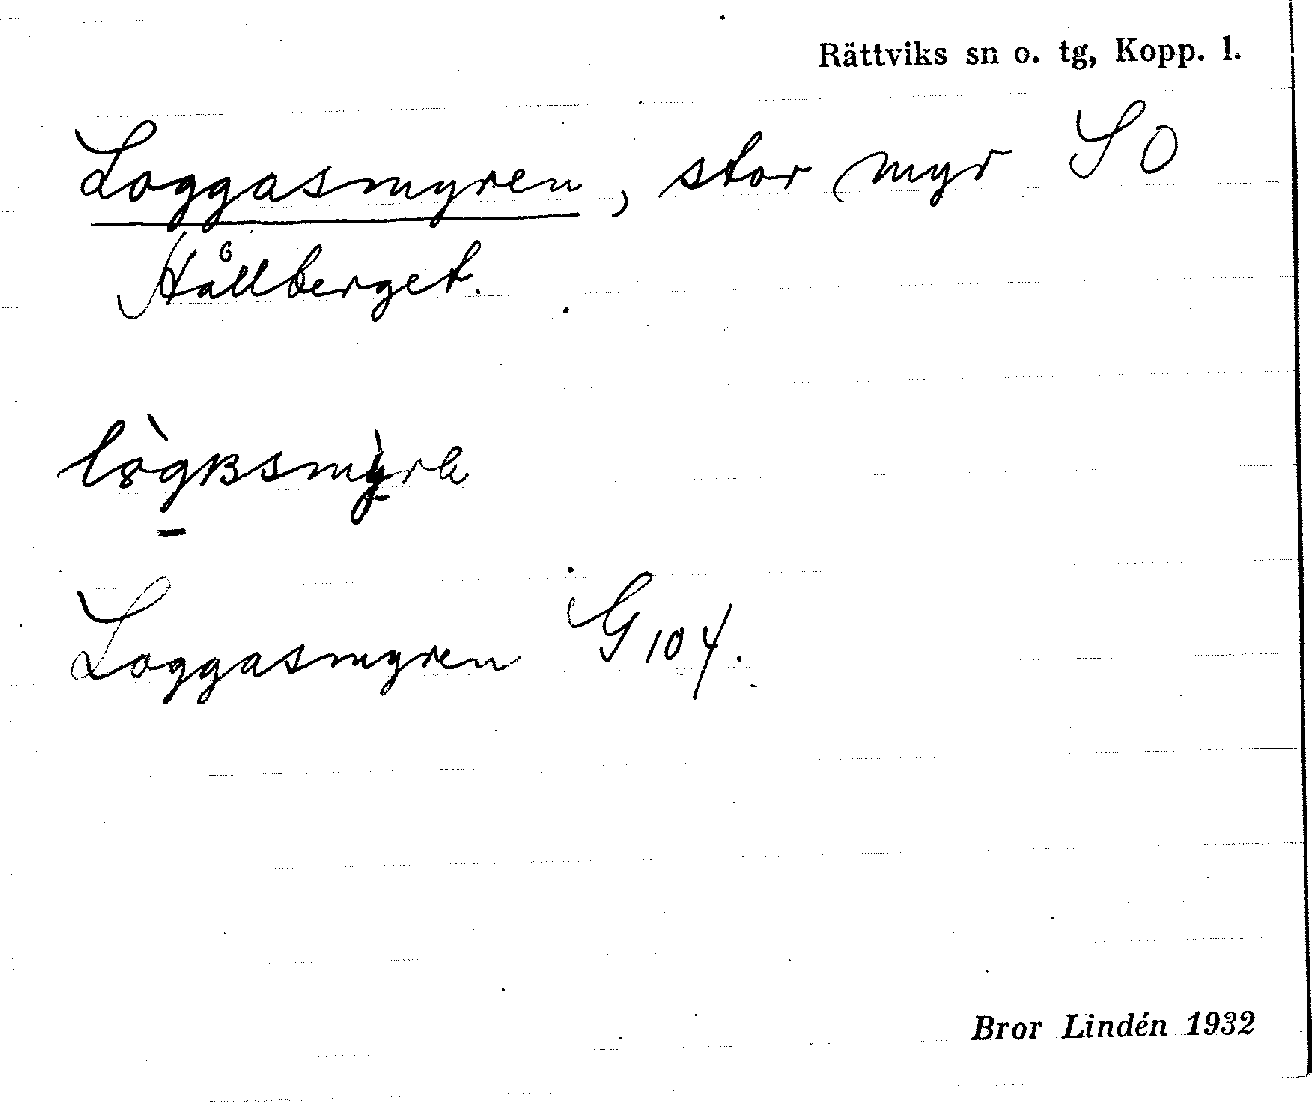 Rättviks sn o. tg, Kopp. l.
Loggasmyren, stor myr SO
Hållberget.
Loggasmyren G 104.
Bror Lindén 1932